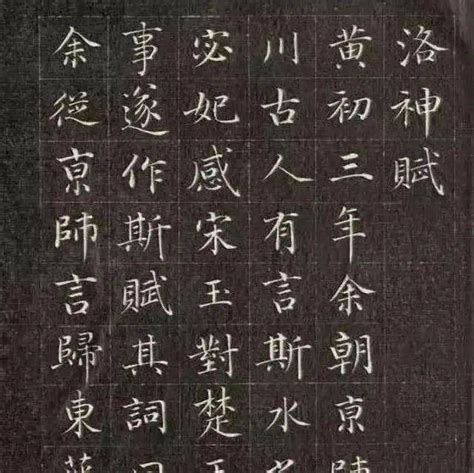 洛神賦
黄初三年余朝亰
川古人有言斯水
宓妃感宋玉對楚
事遂作斯賦其詞
余從亰師言歸東